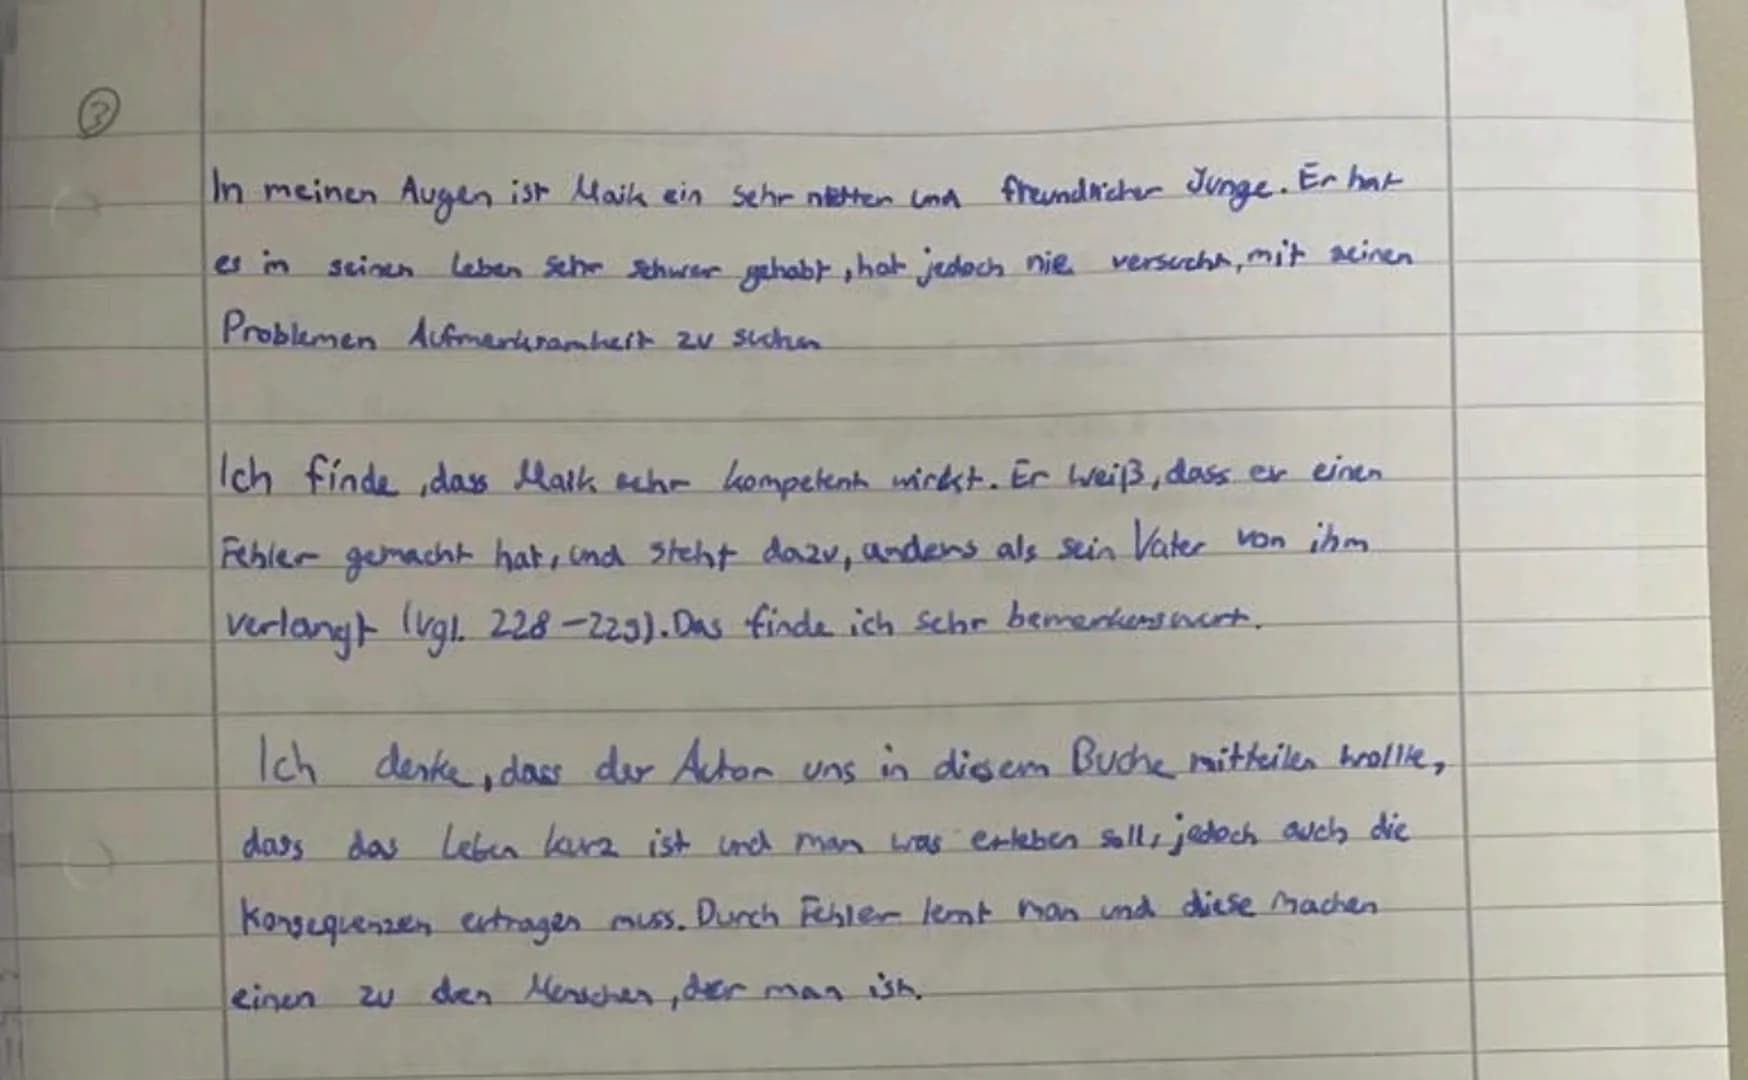 3
In meinen Augen ist Maik ein sehr netter und freundlicher Junge. Er hat
es in seinen Leben sehr schwer gehabt, hat jedoch nie versucht, mit seinen
Problemen Aufmerksamkeit zu suchen
Ich finde, dass Maik sehr kompetent wirkt. Er weiß, dass er einen
Fehler gemacht hat, und steht dazu, anders als sein Vater von ihm
verlangt (vgl. 228-229). Das finde ich sehr bemerkenswert.
Ich denke, dass der Autor uns in diesem Buche mitteilen wollte,
dass das Leben kurz ist und man was erleben soll, jedoch auch die
Konsequenzen ertragen muss. Durch Fehler lernt man und diese machen
einen zu den Menschen, der man ist.